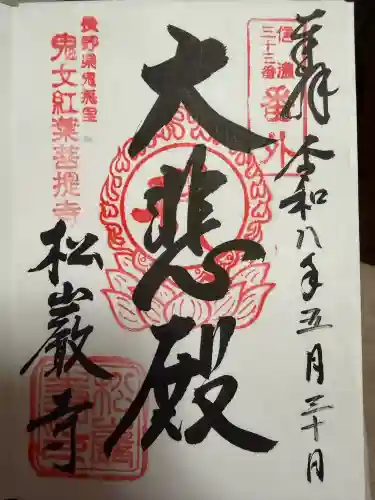 奉拝
令和八年五月三十日
信濃
三十三番
番外
大悲殿
長野県鬼無里
鬼女紅葉菩提寺
松巌寺